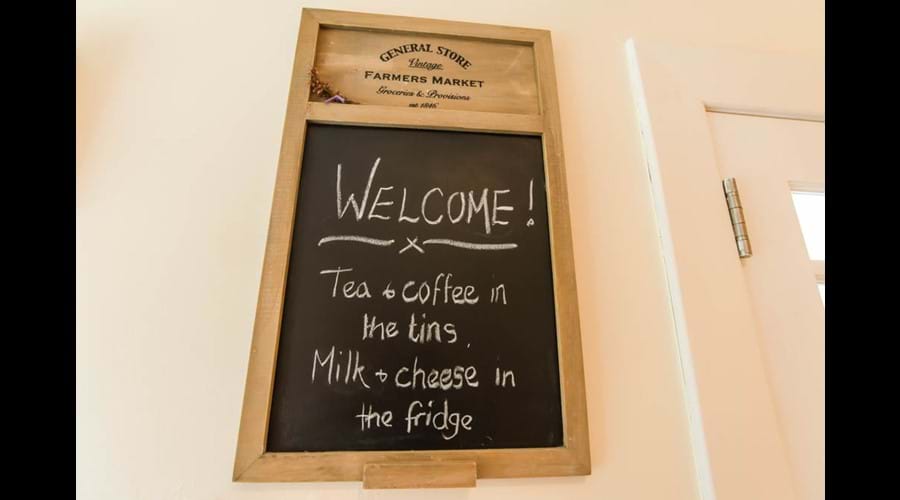 GENERAL STORE
Vintage
FARMERS MARKET
Groceries & Provisions
est 1846
WELCOME!
Tea & coffee in
the tins.
Milk & cheese in
the fridge